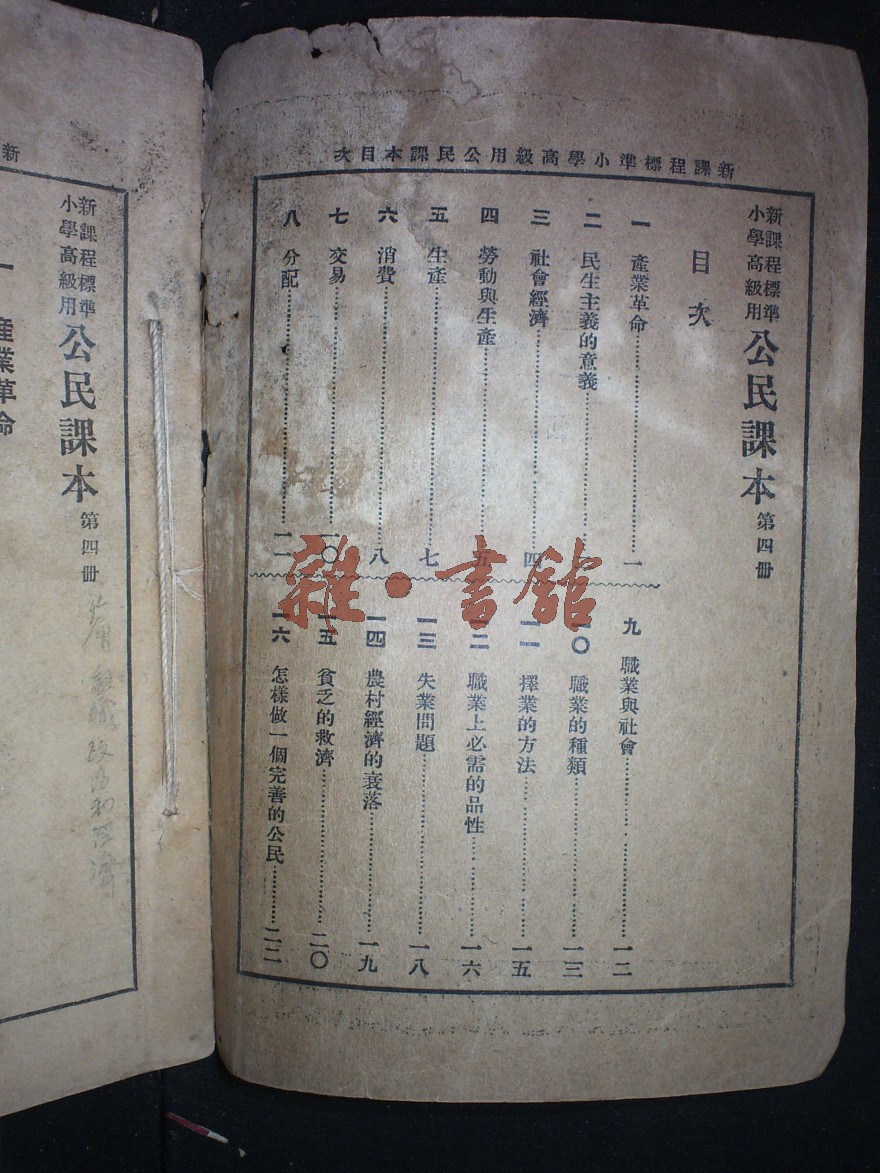 新課程標準小學高級用公民課本目次
新課程標準
小學高級用
公民課本 第四冊
目次
一 產業革命 一
二 民生主義的意義
三 社會經濟 四
四 勞動與生產 五
五 生產 七
六 消費 八
七 交易 一〇
八 分配 一一
九 職業與社會 一二
一〇 職業的種類 一三
一一 擇業的方法 一五
一二 職業上必需的品性 一六
一三 失業問題 一八
一四 農村經濟的衰落 一九
一五 貧乏的救濟 二〇
一六 怎樣做一個完善的公民 二二
雜·書館
新
新課程標準
小學高級用
公民課本 第四冊
政治和經濟
一 產業革命